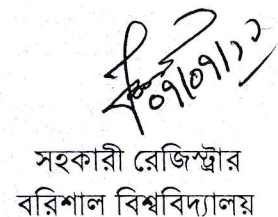 ০৭/০৭/১১
সহকারী রেজিস্ট্রার
বরিশাল বিশ্ববিদ্যালয়